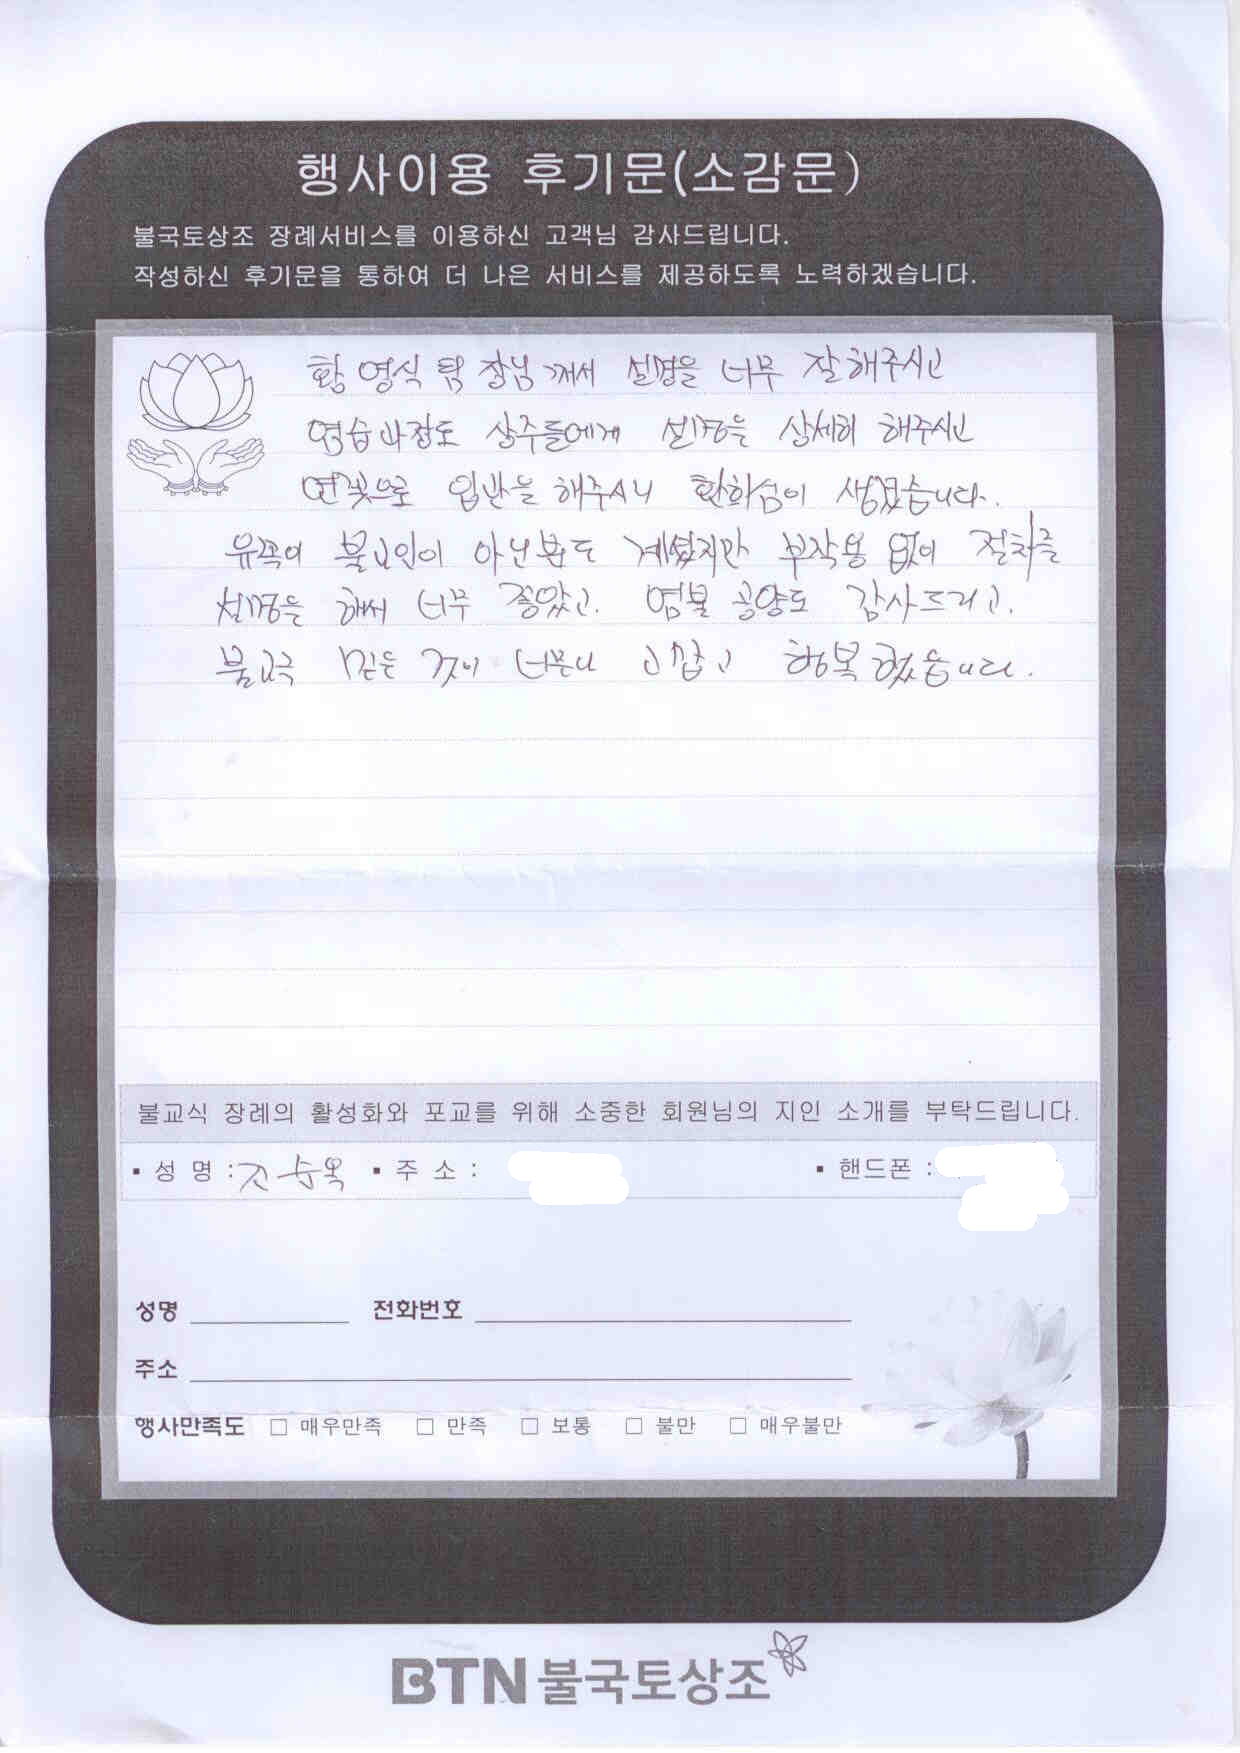 행사이용 후기문(소감문)
불국토상조 장례서비스를 이용하신 고객님 감사드립니다.
작성하신 후기문을 통하여 더 나은 서비스를 제공하도록 노력하겠습니다.
황영식 팀장님께서 설명을 너무 잘해주시고
염습과정도 상주들에게 설명을 상세히 해주시고
연꽃으로 입반을 해주시니 환희심이 생겼습니다.
유족이 불교인이 아닌분도 계셨지만 부작용 없이 절차를
설명을 해서 너무 좋았고. 염불 공양도 감사드리고.
불교를 믿은 것이 너무나 고맙고 행복했습니다.
불교식 장례의 활성화와 포교를 위해 소중한 회원님의 지인 소개를 부탁드립니다.
▪ 성 명 : 조순옥 ▪ 주 소 : ▪ 핸드폰 :
성명 전화번호
주소
행사만족도 □ 매우만족 □ 만족 □ 보통 □ 불만 □ 매우불만
BTN불국토상조